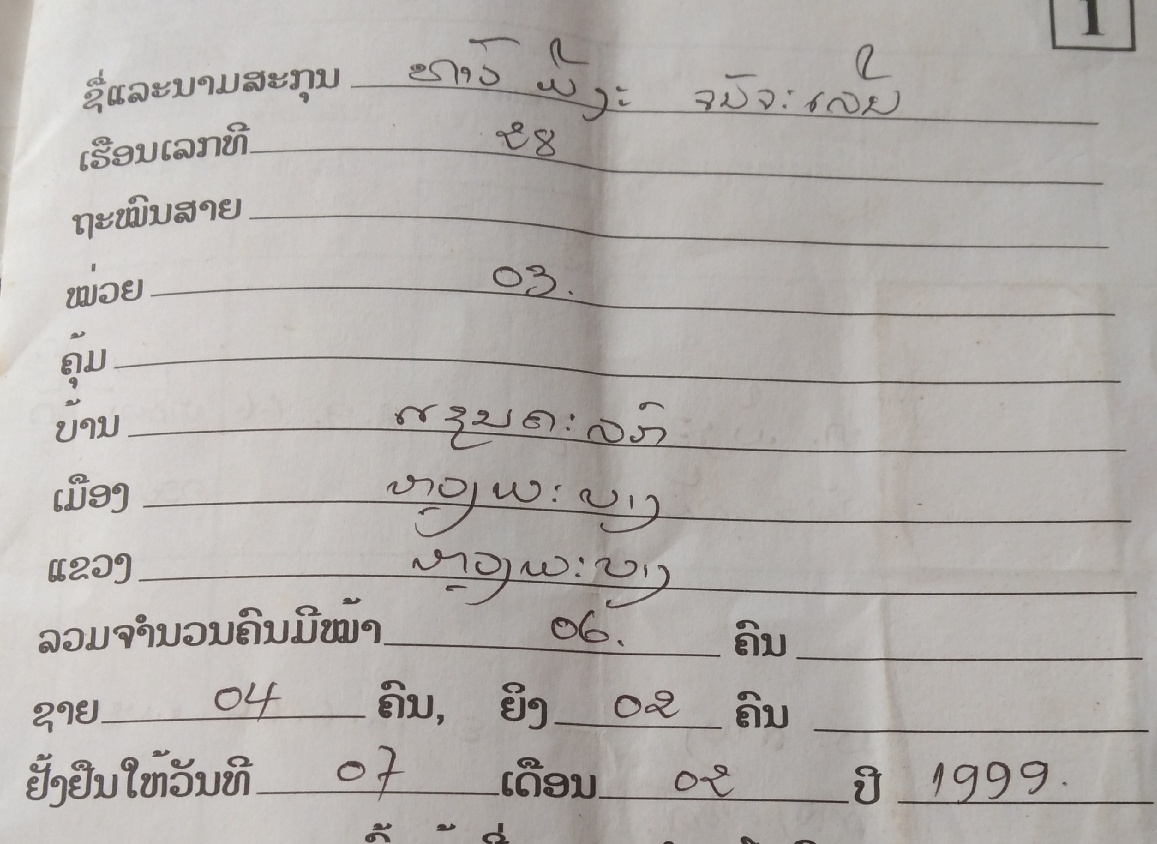 1
ຊື່ແລະນາມສະກຸນ ທາວ
ເຮືອນເລກທີ 28
ຖະໜົນສາຍ
ໜ່ວຍ 03.
ຄຸ້ມ
ບ້ານ
ເມືອງ ຫຼວງພະບາງ
ແຂວງ ຫຼວງພະບາງ
ລວມຈຳນວນຄົນມີໜ້າ 06. ຄົນ
ຊາຍ 04 ຄົນ, ຍິງ 02 ຄົນ
ຢັ້ງຢືນໃຫ້ວັນທີ 07 ເດືອນ 02 ປີ 1999.